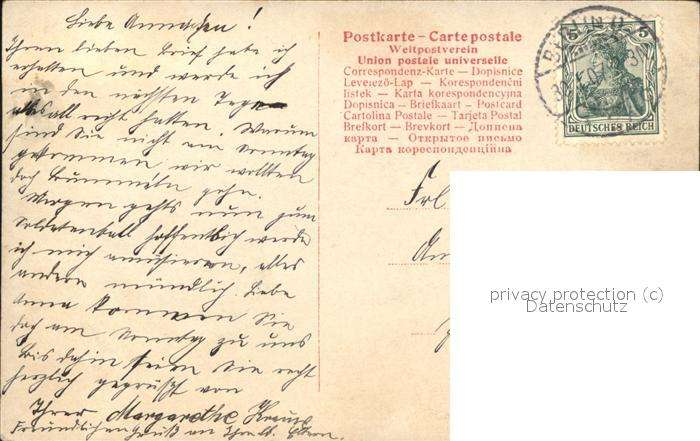 Liebe Annchen!
Ihren lieben Brief habe ich
erhalten und werde ich
in den nächsten Tagen
sind Sie nicht am Sonntag
gekommen wir wollten
doch bummeln gehn.
Morgen gehts nun zum
Soldatenball hoffentlich werde
ich mich amüsieren, alles
andere mündlich. Liebe
Anna kommen Sie
doch am Sonntag zu uns
bis dahin seien Sie recht
herzlich gegrüßt von
Ihrer Margarethe
Freundlichen Gruß an Ihre lb. Eltern.
Postkarte – Carte postale
Weltpostverein
Union postale universelle
Correspondenz-Karte – Dopisnice
Levelező-Lap – Korespondenční
lístek – Karta korespondencyjna
Dopisnica – Briefkaart – Postcard
Cartolina Postale – Tarjeta Postal
Brefkort – Brevkort – Дописна
карта – Открытое письмо
Карта кореспонденційна
5 5
DEUTSCHES REICH
Frl
An
privacy protection (c)
Datenschutz